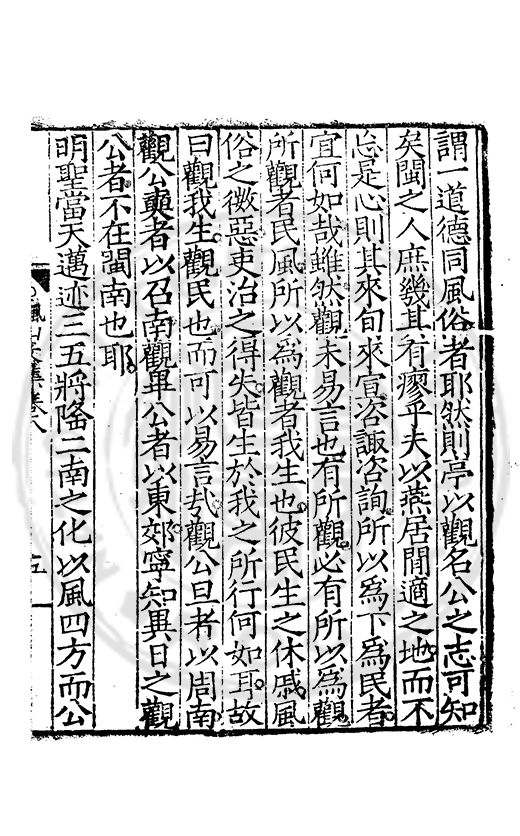 謂一道德同風俗者耶然則亭以觀名公之志可知
矣閩之人庶幾其有瘳乎夫以燕居閒適之地而不
忘是心則其來旬來宣咨諏咨詢所以爲下爲民者
宜何如哉雖然觀未易言也有所觀必有所以爲觀
所觀者民風所以爲觀者我生也彼民生之休戚風
俗之微惡吏治之得失皆生於我之所行何如耳故
曰觀我生觀民也而可以易言哉觀公旦者以周南
觀公奭者以召南觀畢公者以東郊寧知異日之觀
公者不在閩南也耶
明聖當天邁迹三五將隆二南之化以風四方而公
卷八